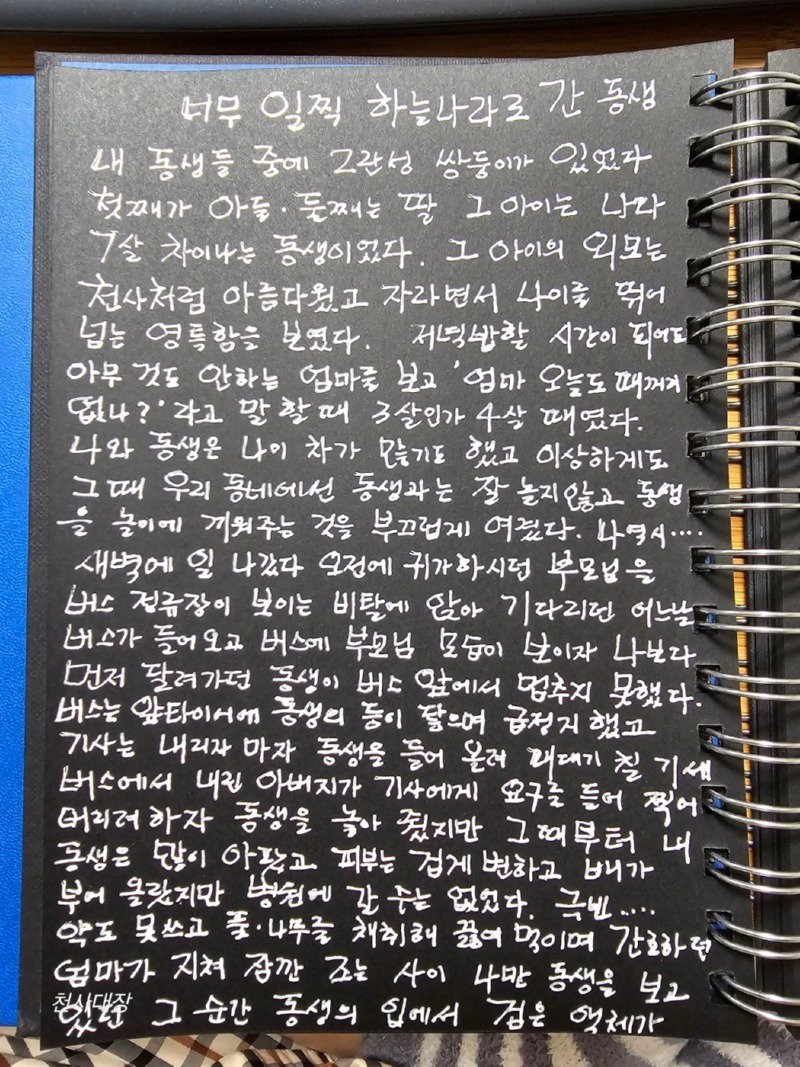 너무 일찍 하늘나라로 간 동생
내 동생들 중에 2란성 쌍둥이가 있었다
첫째가 아들·둘째는 딸 그 아이는 나와
7살 차이나는 동생이었다. 그 아이의 외모는
천사처럼 아름다웠고 자라면서 나이를 뛰어
넘는 영특함을 보였다. 저녁밥할 시간이 되어도
아무 것도 안하는 엄마를 보고 '엄마 오늘도 때꺼리
없나?'라고 말 할 때 3살인가 4살 때였다.
나와 동생은 나이 차가 많기도 했고 이상하게도
그때 우리 동네에선 동생과는 잘 놀지 않고 동생
을 놀이에 끼워주는 것을 부끄럽게 여겼다. 나 역시····
새벽에 일 나갔다 오전에 귀가하시던 부모님을
버스 정류장이 보이는 비탈에 앉아 기다리던 어느날
버스가 들어오고 버스에 부모님 모습이 보이자 나보다
먼저 달려가던 동생이 버스 앞에서 멈추지 못했다.
버스는 앞타이어에 동생의 등이 닿으며 급정지 했고
기사는 내리자 마자 동생을 들어 올려 패대기 칠 기세
버스에서 내린 아버지가 기사에게 요구를 들어 찍어
버리려 하자 동생을 놓아 줬지만 그때부터 내
동생은 많이 아팠고 피부는 검게 변하고 배가
부어 올랐지만 병원에 갈 수는 없었다. 극빈····
약도 못쓰고 풀·나무를 채취해 끓여 먹이며 간호하던
엄마가 지쳐 잠깐 조는 사이 나만 동생을 보고
있던 그 순간 동생의 입에서 검은 액체가
천사대장